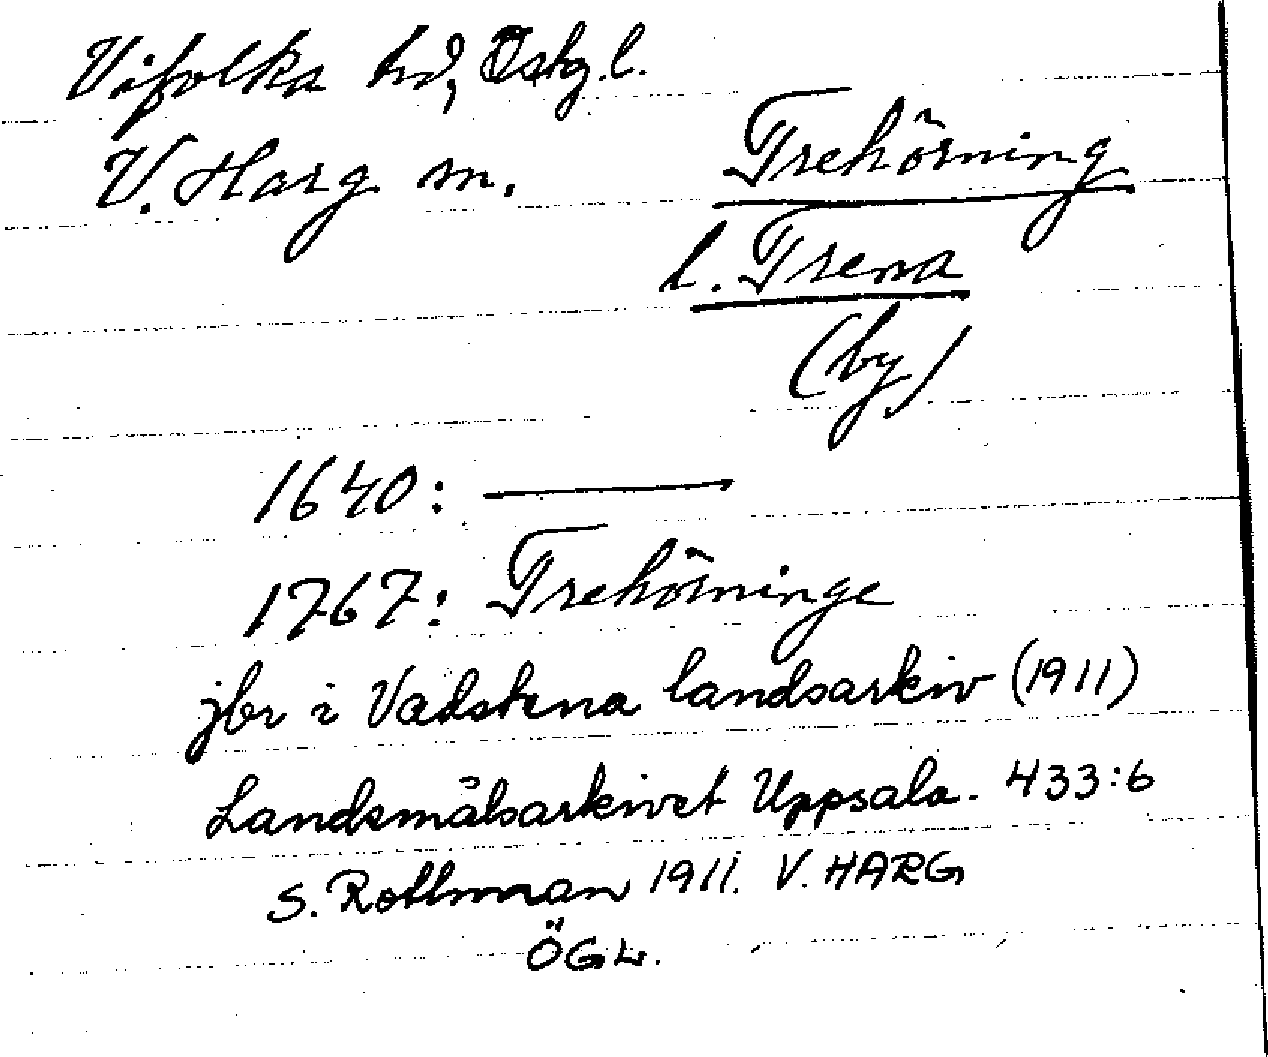 Vifolka hd, Östg.l.
V. Harg sn.
Trehörning
l. Trena
(by)
1640: ———
1767: Trehörninge
jbr i Vadstena landsarkiv (1911)
Landsmålsarkivet Uppsala. 433:6
S. Rothman 1911. V. HARG
ÖGL.